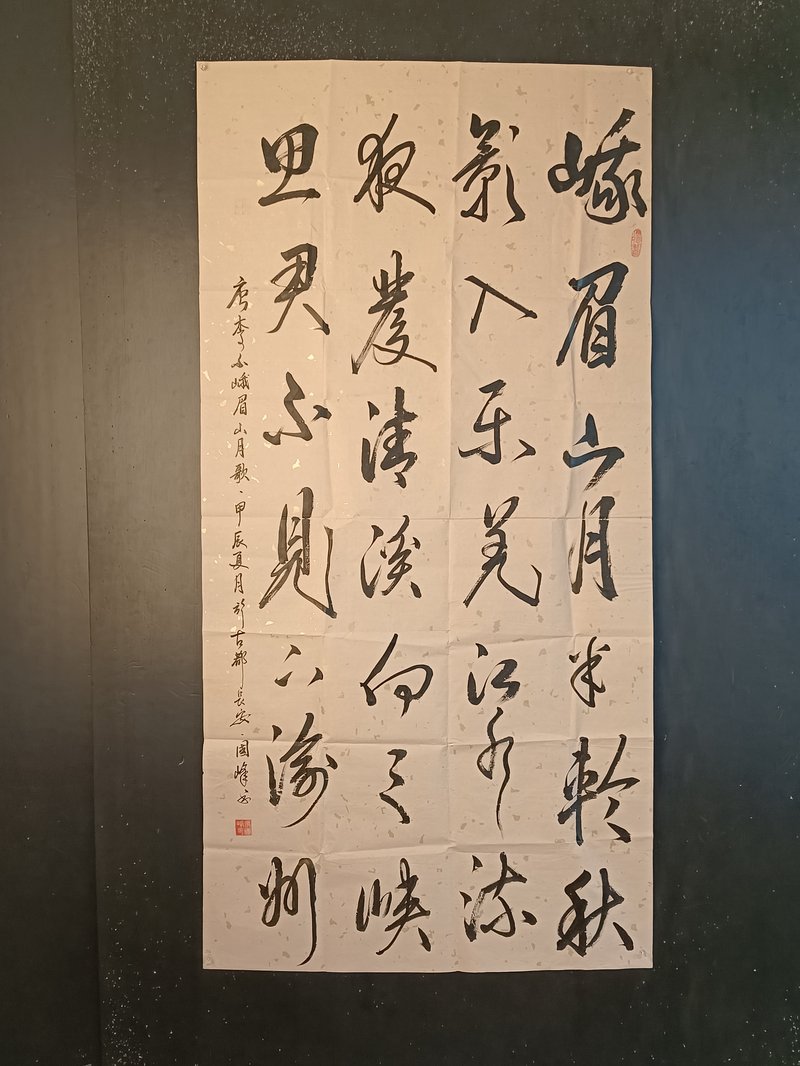 峨眉山月半輪秋
影入平羌江水流
夜發清溪向三峡
思君不見下渝州
唐李白峨眉山月歌、甲辰夏月於古都長安、国峰书